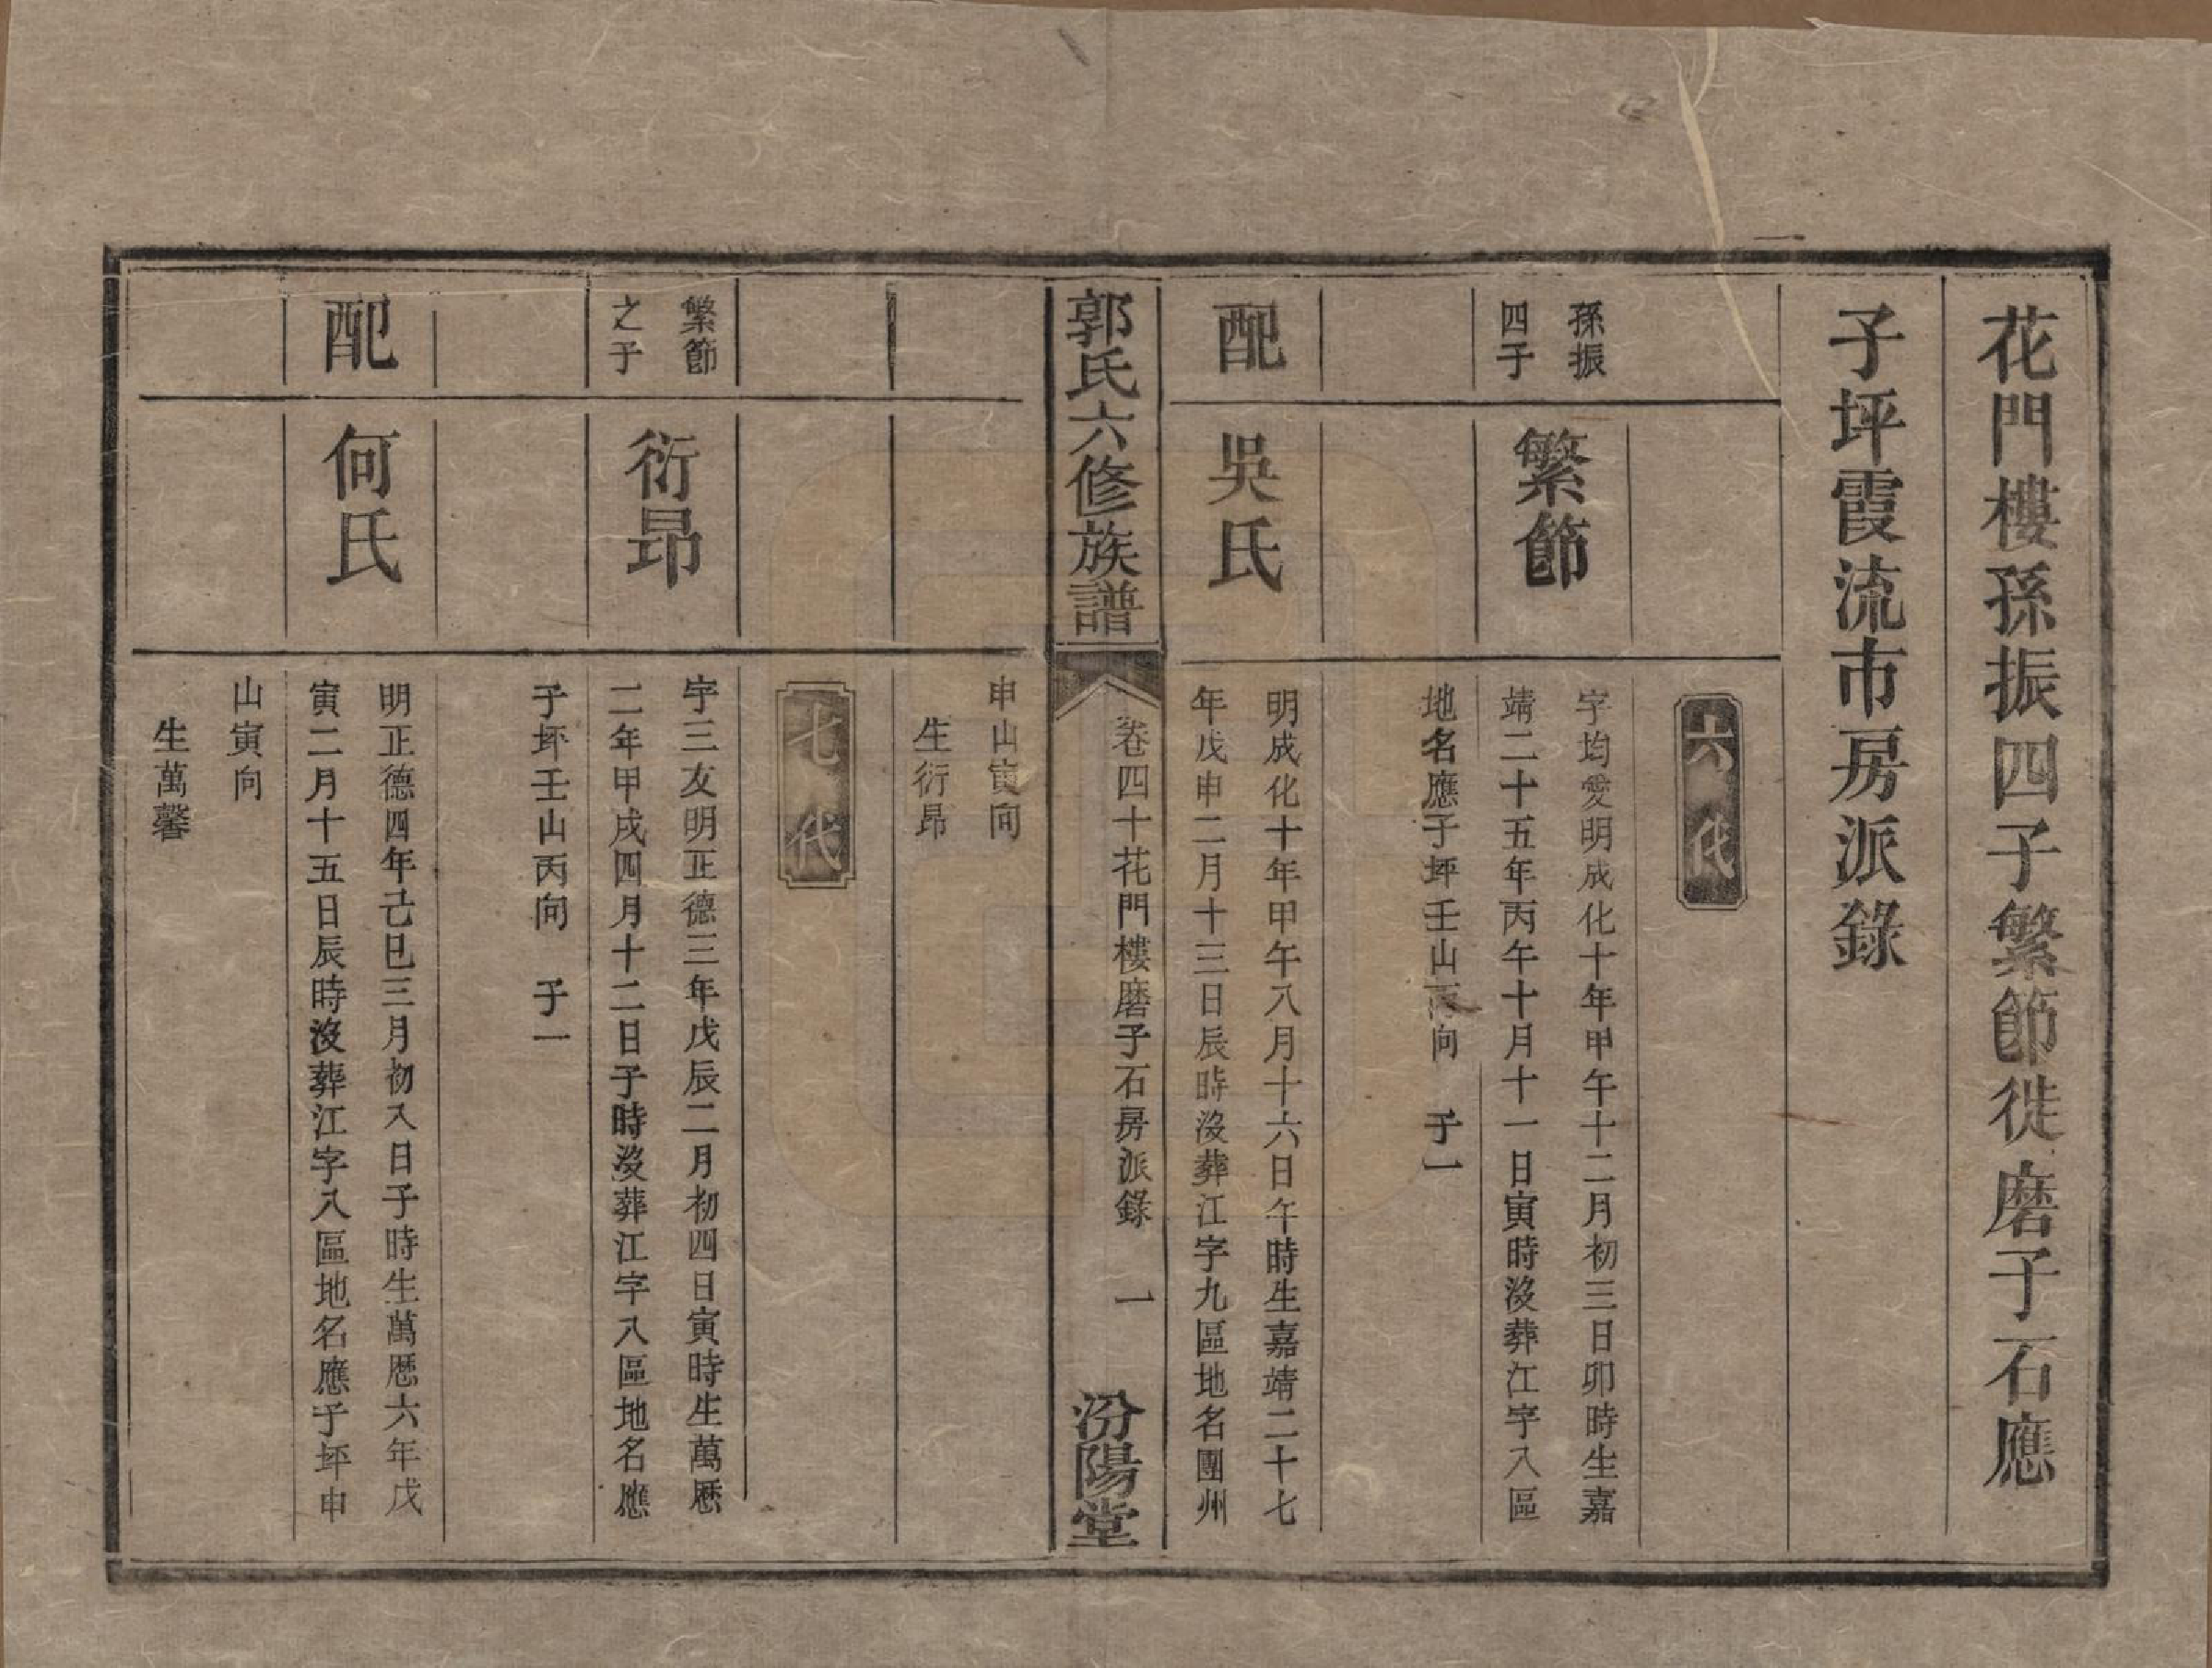 花門樓孫振四子繁節徙磨子石應
子坪霞流市房派錄
六代
孫振
四子
繁節
字均愛明成化十年甲午十二月初三日卯時生嘉
靖二十五年丙午十月十一日寅時沒葬江字八區
地名應子坪壬山丙向 子一
配
吳氏
明成化十年甲午八月十六日午時生嘉靖二十七
年戊申二月十三日辰時沒葬江字九區地名團州
郭氏六修族譜
卷四十花門樓磨子石房派錄 一
汾陽堂
申山寅向
生衍昂
七代
繁節
之子
衍昂
字三友明正德三年戊辰二月初四日寅時生萬歷
二年甲戌四月十二日子時沒葬江字八區地名應
子坪壬山丙向 子一
配
何氏
明正德四年己巳三月初八日子時生萬歷六年戊
寅二月十五日辰時沒葬江字八區地名應子坪申
山寅向
生萬馨